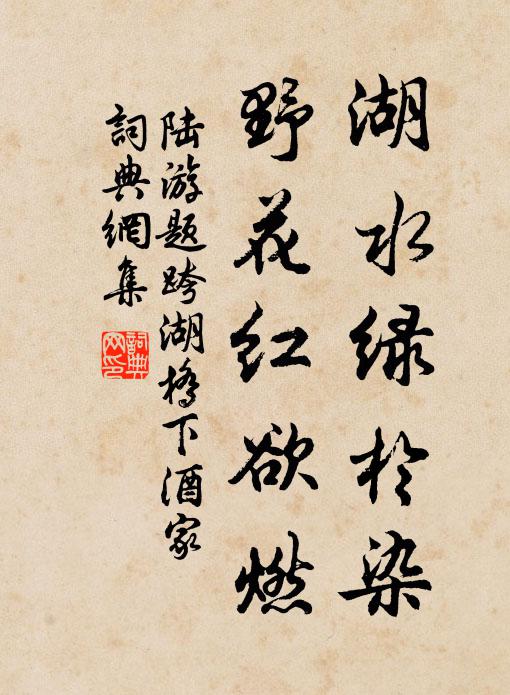 湖水緑於染
野花红欲燃
陆游题跨湖橋下酒家
詞典網集
詞典网印